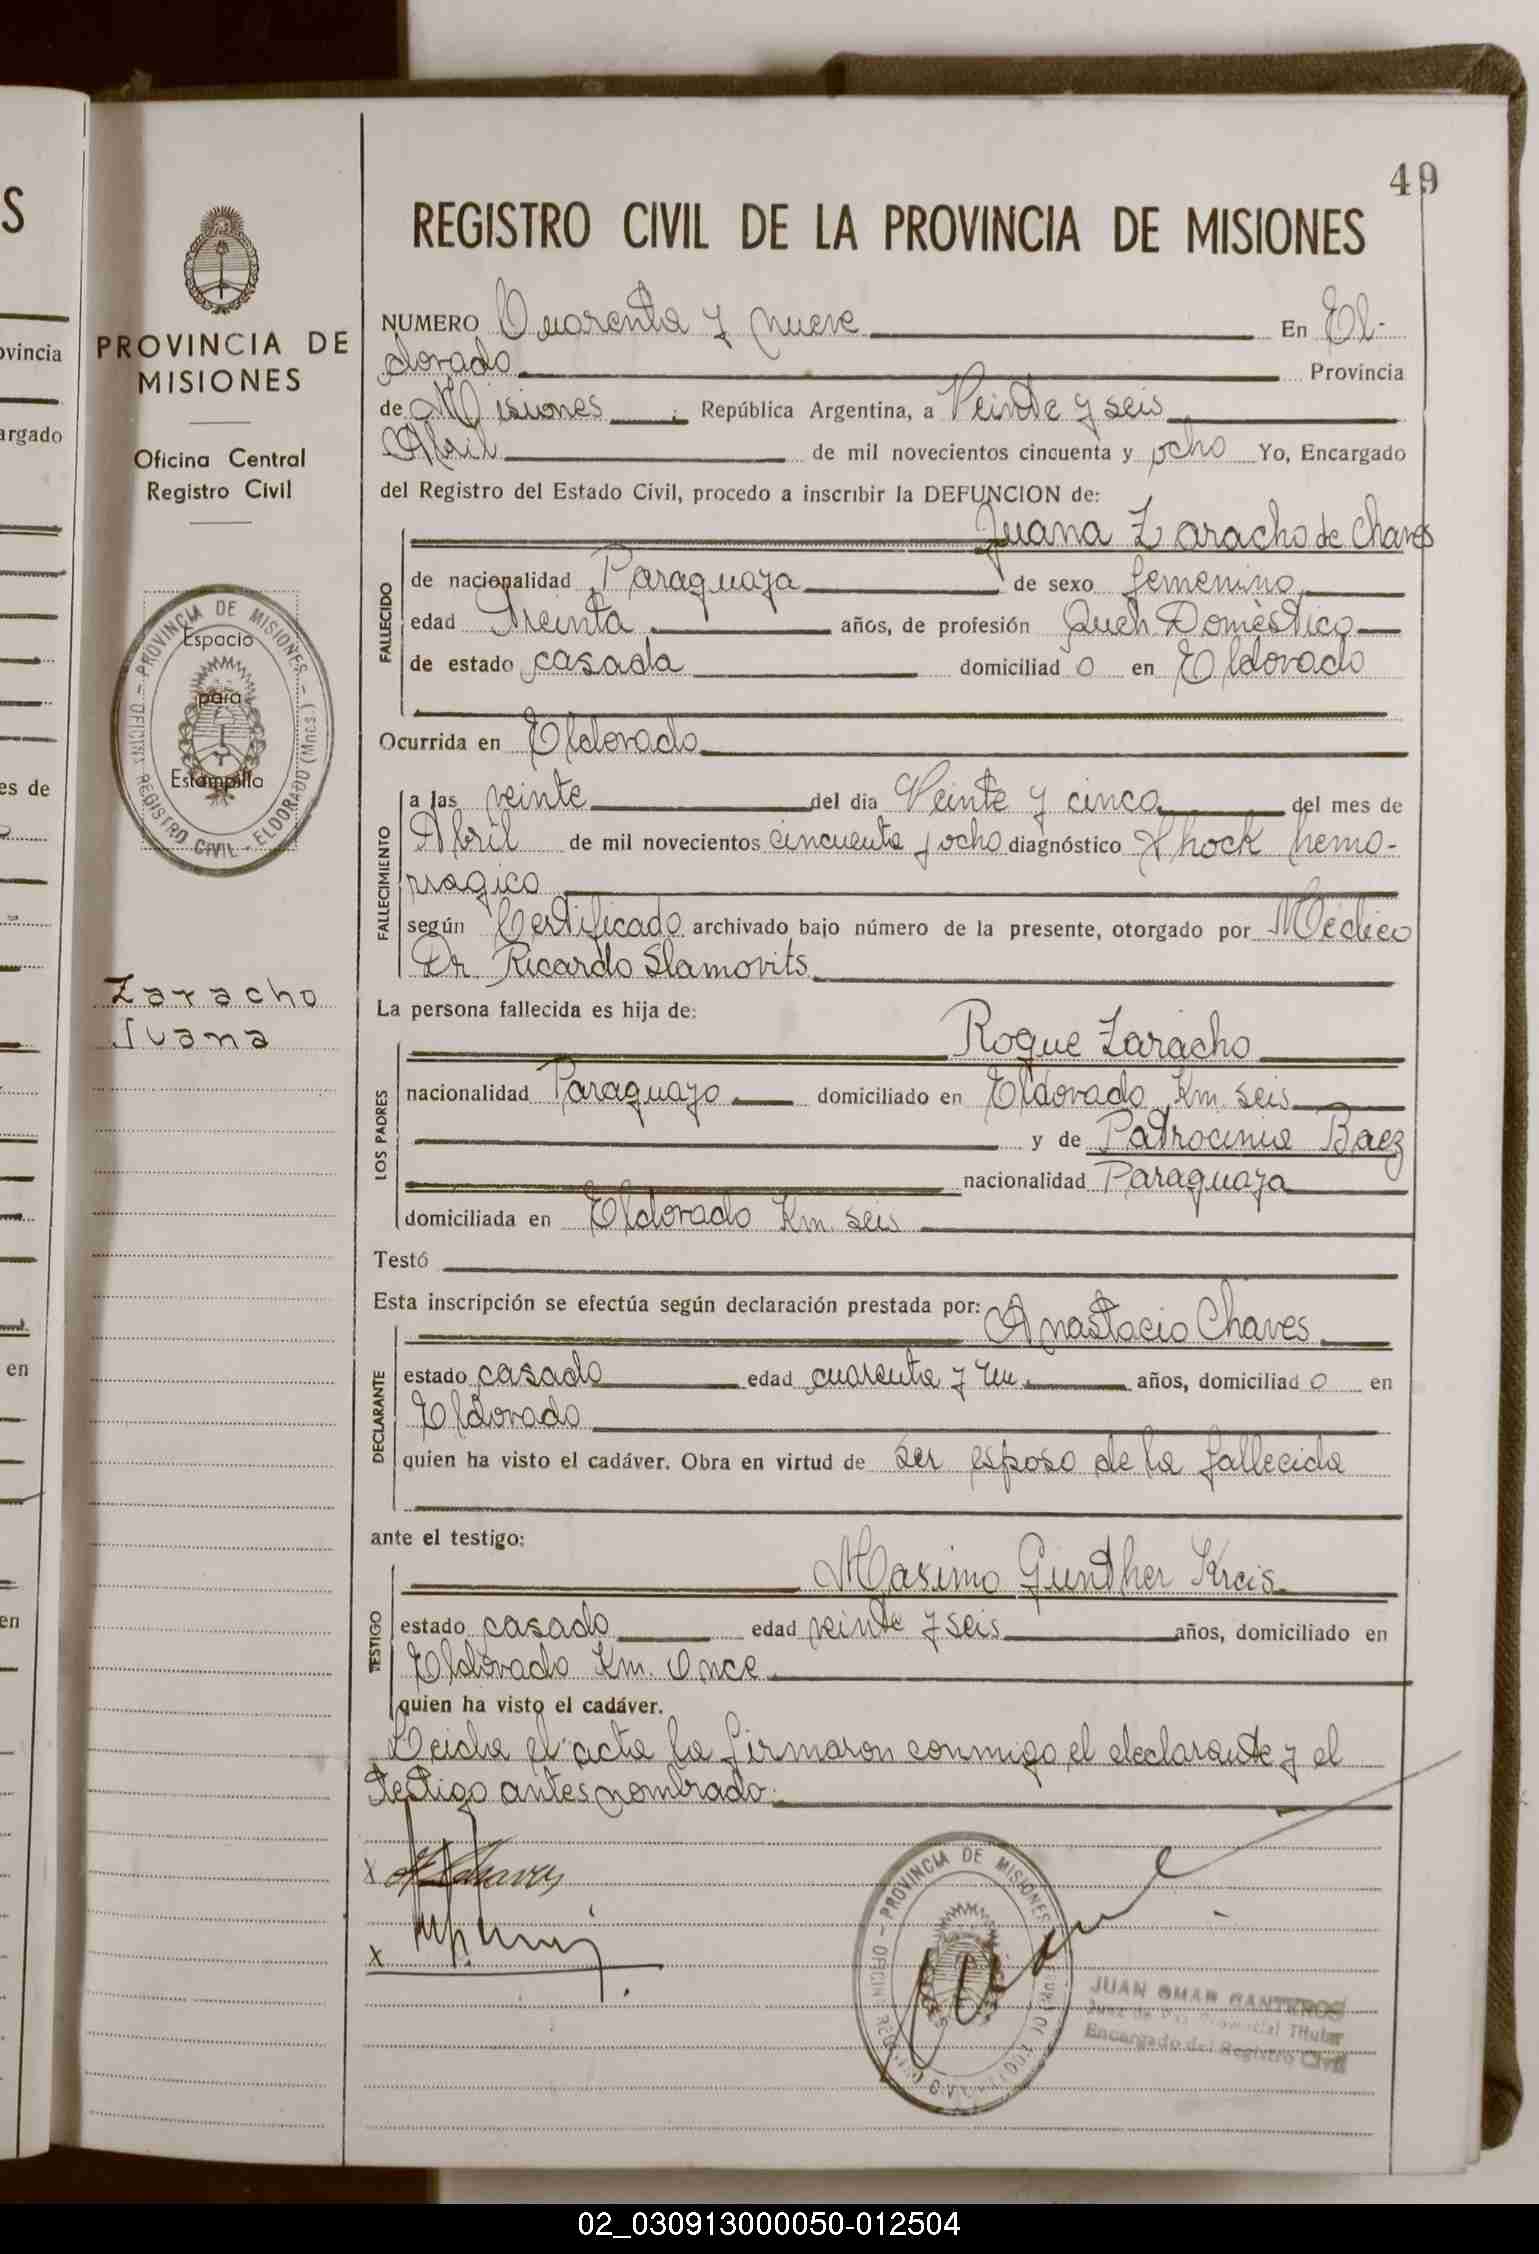 49
REGISTRO CIVIL DE LA PROVINCIA DE MISIONES
PROVINCIA DE
MISIONES
Oficina Central
Registro Civil
PROVINCIA DE MISIONES - OFICINA REGISTRO CIVIL - ELDORADO (Mnes.)
Espacio
para
Estampilla
Zaracho
Juana
NUMERO Cuarenta y nueve En El-
dorado Provincia
de Misiones República Argentina, a Veinte y seis
Abril de mil novecientos cincuenta y ocho Yo, Encargado
del Registro del Estado Civil, procedo a inscribir la DEFUNCION de:
FALLECIDO
Juana Zaracho de Chaves
de nacionalidad Paraguaya de sexo femenino
edad Treinta años, de profesión Queh. Doméstico
de estado casada domiciliad o en Eldorado
Ocurrida en Eldorado
FALLECIMIENTO
a las veinte del dia Veinte y cinco del mes de
Abril de mil novecientos cincuenta y ocho diagnóstico Shock hemo-
rragico
según Certificado archivado bajo número de la presente, otorgado por Médico
Dr. Ricardo Slamovits
La persona fallecida es hija de:
LOS PADRES
Roque Zaracho
nacionalidad Paraguayo domiciliado en Eldorado Km. seis
y de Patrocinia Baez
nacionalidad Paraguaya
domiciliada en Eldorado Km. seis
Testó
Esta inscripción se efectúa según declaración prestada por:
DECLARANTE
Anastacio Chaves
estado casado edad cuarenta y un años, domiciliad o en
Eldorado
quien ha visto el cadáver. Obra en virtud de ser esposo de la fallecida
ante el testigo:
TESTIGO
Maximo Gunther Kreis
estado casado edad veinte y seis años, domiciliado en
Eldorado Km. Once
quien ha visto el cadáver.
Leida el acta la firmaron conmigo, el declarante y el
testigo antes nombrado.
x A Chaves
x
PROVINCIA DE MISIONES
JUAN OMAR CANTEROS
Juez de Paz Provincial Titular
Encargado del Registro Civil
ovincia
argado
es de
en
en
S
02_030913000050-012504